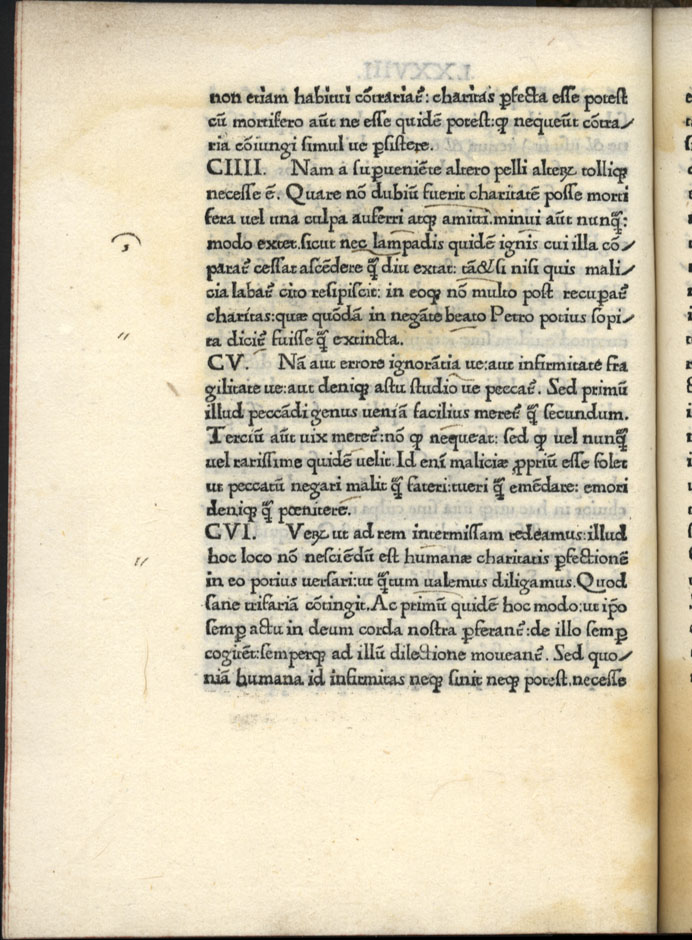 non etiam habitui cōtrariat᷑: charitas ꝑfecta esse potest
cū mortifero aūt ne esse quidē potest: ꝙ nequeūt cōtra⸗
ria cōiungi simul ue ꝑsistere.
CIIII. Nam a suꝑueniēte altero pelli alteꝝ tolliqꝫ
necesse ē. Quare nō dubiū fuerit charitatē posse morti
fera uel una culpa auferri atqꝫ amitti. minui aūt nunq̄ꝫ:
modo extet. sicut nec lampadis quidē ignis cui illa cō⸗
parat᷑ cessat ascēdere q̄ꝫ diu extat: tā&si nisi quis mali⸗
cia labat᷑ cito resipiscit: in eoqꝫ nō multo post recuꝑat᷑
charitas: quæ quōdā in negāte beato Petro potius sopi⸗
ta dicit᷑ fuisse q̄ꝫ extincta.
CV. Nā aut errore ignorātia ue: aut infirmitate fra
gilitate ue: aut deniqꝫ astu studio ue peccat᷑. Sed primū
illud peccādi genus ueniā facilius meret᷑ q̄ꝫ secundum.
Terciū aūt uix meret᷑: nō ꝙ nequeat: sed ꝙ uel nunq̄ꝫ
uel rarissime quidē uelit. Id eni maliciæ ꝓpriū esse solet
ut peccatū negari malit q̄ꝫ fateri: tueri q̄ꝫ emēdare: emori
deniqꝫ q̄ꝫ pœnitere.
CVI. Veꝝ ut ad rem intermissam redeamus: illud
hoc loco nō nesciēdū est humanæ charitatis ꝑfectionē
in eo potius uersari: ut q̄ꝫtum ualemus diligamus. Quod
sane trifariā cōtingit. Ac primū quidē hoc modo: ut ip̄o
semꝑ actu in deum corda nostra ꝑferant᷑: de illo semꝑ
cogitēt: semperqꝫ ad illū dilectione moueant᷑. Sed quo⸗
niā humana id infirmitas neqꝫ sinit neqꝫ potest. necesse